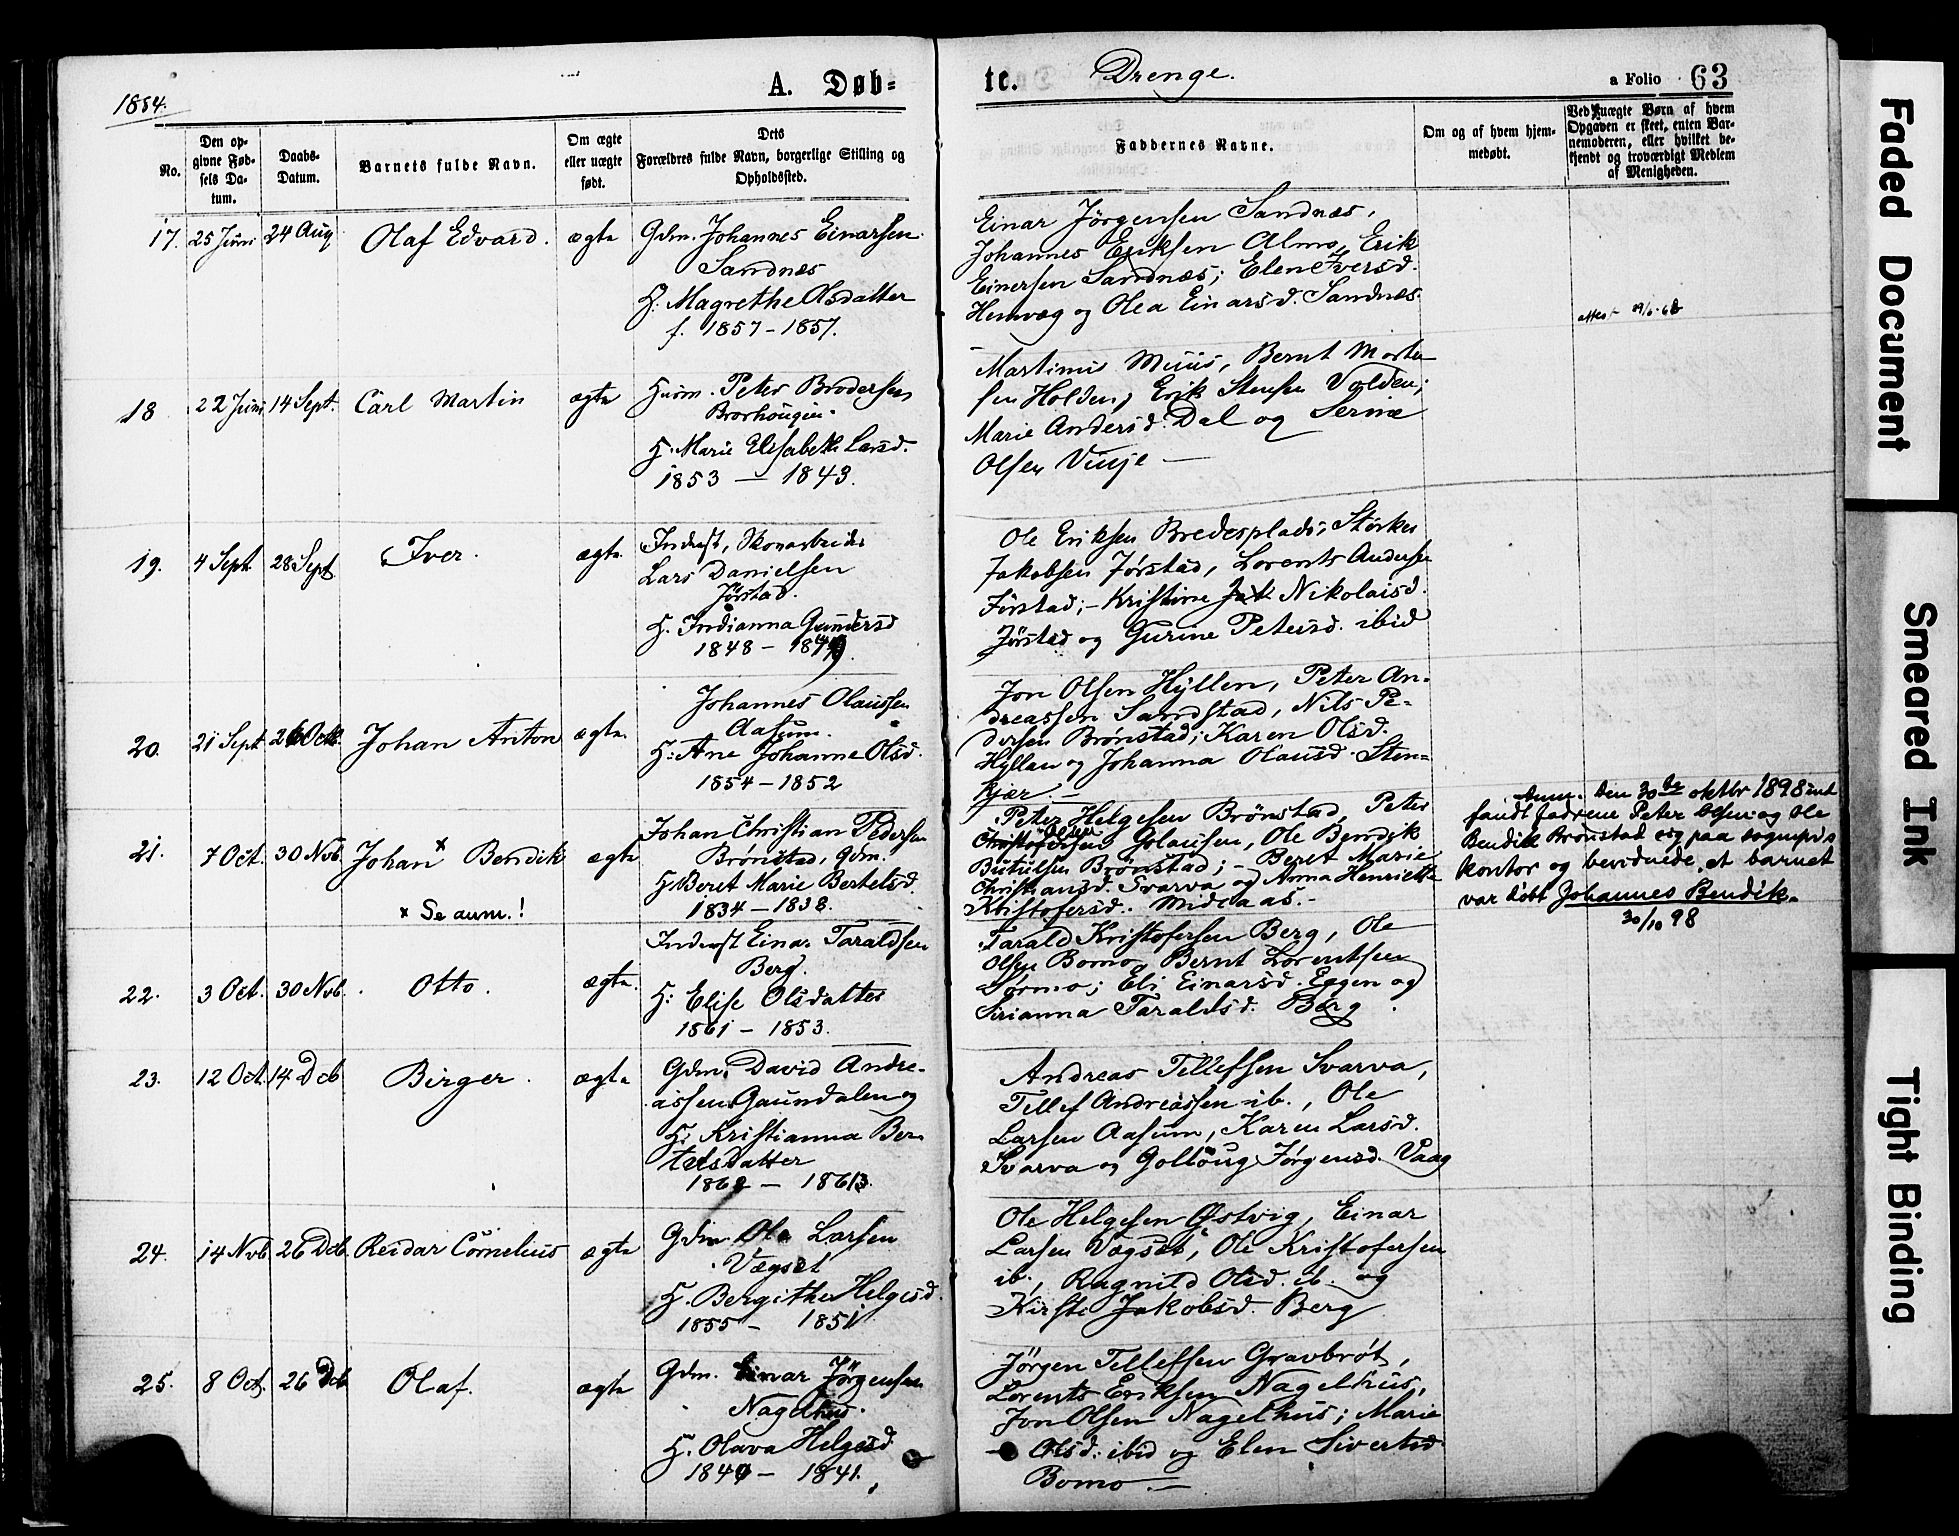 1884.
A. Døb=
te.
Drenge.
a Folio 63
No.
Den op-
givne Fød-
sels Da-
tum.
Daabs-
Datum.
Barnets fulde Navn.
Om ægte
eller uægte
født.
Dets
Forældres fulde Navn, borgerlige Stilling og
Opholdssted.
Faddernes Navne.
Om og af hvem hjem-
medøbt.
Ved uægte Børn af hvem
Opgaven er skeet, enten Bar-
nemoderen, eller hvilket be-
kjendt og troværdigt Medlem
af Menigheden.
17. 25 Juni 24 Aug Olaf Edvard. ægte
Gdm. Johannes Einarsen
Sandnæs
H: Magrethe Olsdatter
f. 1857 - 1857.
Einar Jørgensen Sandnæs,
Johannes Eriksen Almo, Erik
Einersen Sandnæs; Elen Iversd.
Hemvæg og Olea Einarsd. Sandnæs.
attest
18 22 Juni 14 Sept. Carl Martin ægte
Husm. Peter Brodersen
Brorhougen
H. Marie Elisabeth Larsd.
1853 — 1843.
Martinus Muus, Bernt Morten
sen Holden; Erik Stensen Volden;
Marie Andersd. Dal og Serine
Olsen Vinje —
19. 4 Sept. 28 Sept. Iver. ægte
Inderst, Skomarbeider
Lars Danielsen
Jørstad.
H. Indianna Gundersd
1848 - 1849
Ole Eriksen Bredesplads; Størker
Jakobsen Jørstad, Lorents Andersen
Jørstad; - Kristine Nikolaisd.
Jørstad og Gurine Petersd. ibid
20. 21 Sept 26 Octb. Johan Anton ægte
Johannes Olaussen
Aasum.
H: Ane Johanne Olsd.
1854 - 1852
Jon Olsen Hyllen, Peter An-
dreassen Sandstad, Nils Pe-
dersen Brønstad; Karen Olsd.
Hyllan og Johanna Olausd. Sten-
kjær. —
21. 7 Oct. 30 Nvb. Johan x Bendik ægte
x Se anm.!
Johan Christian Pedersen
Brønstad, Gdm.
H Beret Marie Bertelsd.
1834 - 1838.
Peter Helgesen Brønstad, Peter
Olsen
Christofersen Golausen, Ole Bendik
Butulsen Brønstad; - Beret Marie
Christiansd. Svarva og Anna Henriette
Kristofersd. Midtaas. -
Anm. Den 30de oktbr 1898 ind
fandt fadrene Peter Olsen og Ole
Bendik Brønstad sig paa sognepr's
kontor og bevidnede, at barnet
var døbt Johannes Bendik.
30/10 98
22. 3 Oct. 30 Nvb. Otto. ægte.
Inderst Einar Taraldsen
Berg.
H: Elise Olsdatter
1861 - 1853.
Tarald Kristofersen Berg, Ole
Olsen Bomo, Bernt Lorentsen
Sørmo; Eli Einarsd. Eggen og
Sirianna Taraldsd. Berg.
23. 12 Oct. 14 Dcb Birger. ægte
Gdm. David Andre-
assen Gaundalen og
H: Kristianna Ber-
telsdatter
1862 - 1863.
Andreas Tellefsen Svarva,
Tellef Andreassen ib., Ole
Larsen Aasum, Karen Larsd.
Svarva og Golloug Jørgensd. Vaag
24. 14 Nvb. 26 Dcb. Reidar Cornelius ægte
Gdm. Ole Larsen
Vægset
H. Bergithe Helgesd.
1855 - 1851
Ole Helgesen Østvig, Einar
Larsen Vægset, Ole Kristofersen
ib., Ragnild Olsd. ib. og
Kirsti Jakobsd. Berg
25. 8 Oct. 26 Dcb Olaf. ægte
Gdm. Einar Jørgensen
Nagelhus.
H. Olava Helgesd
1840 - 1841.
Jörgen Tellefsen Gravbrøt,
Lorents Eriksen Nagelhus,
Jon Olsen Nagelhus; Marie
Olsd. ibid og Elen Sivertsd
Bomo. —
Faded Document
Smeared Ink
Tight Binding